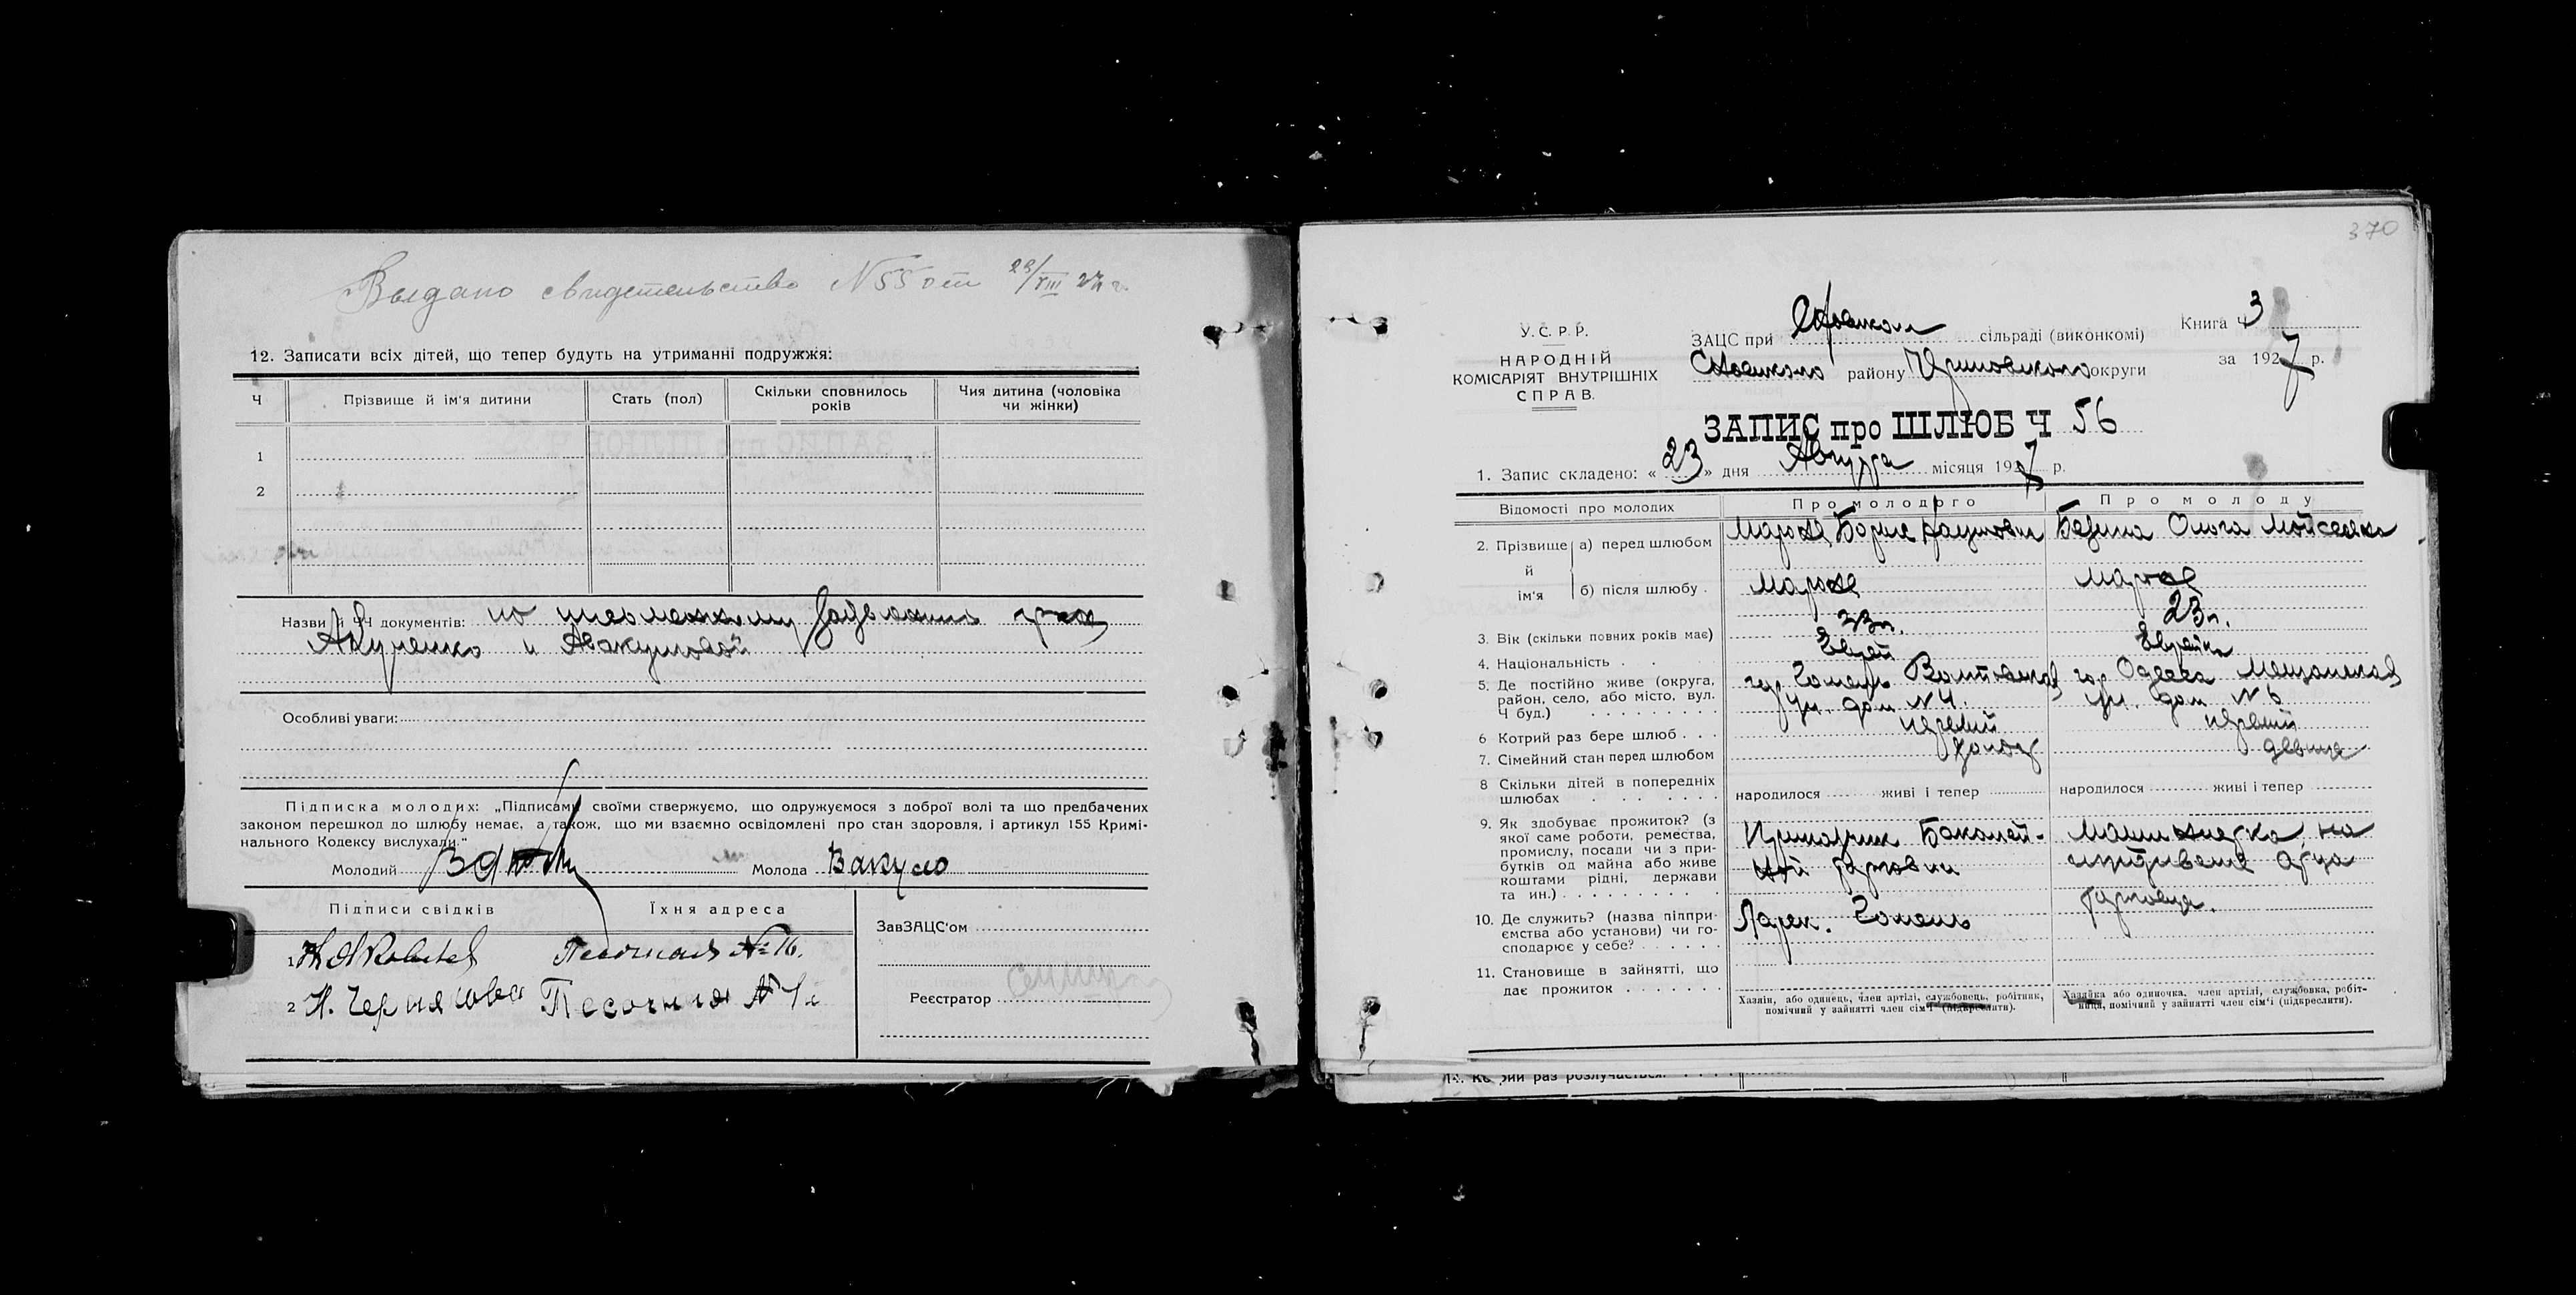 Выдано свидетельство N 55 от 23/VIII 27 г.
12. Записати всіх дітей, що тепер будуть на утриманні подружжя:
Ч
Прізвище й ім'я дитини
Стать (пол)
Скільки сповнилось років
Чия дитина (чоловіка чи жінки)
1
2
Назви й ЧЧ документів: по письменному
и
Особливі уваги:
Підписка молодих: „Підписами своїми стверджуємо, що одружуємося з доброї волі та що предбачених
законом перешкод до шлюбу немає, а також, що ми взаємно освідомлені про стан здоровля, і артикул 155 Кримі-
нального Кодексу вислухали."
Молодий
Молода Вакуло
Підписи свідків
Їхня адреса
1
Песочная № 16.
2 Н. Чернякова Песочная N
ЗавЗАЦС'ом
Реєстратор
370
У. С. Р. Р.
НАРОДНІЙ
КОМІСАРІЯТ ВНУТРІШНІХ
СПРАВ.
ЗАЦС при Сновском сільраді (виконкомі)
Сновского району округи
Книга Ч 3
за 1927 р.
ЗАПИС про ШЛЮБ Ч 56
1. Запис складено: « 23 » дня Августа місяця 1927 р.
Відомості про молодих
Про молодого
Про молоду
2. Прізвище й ім'я
а) перед шлюбом
Борис Наумович
Ольга Мойсеевна
б) після шлюбу .
3. Вік (скільки повних років має)
23 л.
4. Національність .
Еврей
Еврейка
5. Де постійно живе (округа,
район, село, або місто, вул.
Ч буд.)
гор. Гомель
ул. дом N 4.
гор. Одесса Мещанская
ул. дом N 6
6 Котрий раз бере шлюб . . .
первый
первый
7. Сімейний стан перед шлюбом
холост
девица
8 Скільки дітей в попередніх
шлюбах
народилося живі і тепер
народилося живі і тепер
9. Як здобуває прожиток? (з
якої саме роботи, ремества,
промислу, посади чи з при-
бутків од майна або живе
коштами рідні, держави
та ин.)
Приказчик Бакалей-
ной торговли
на
иждивении отца
торговца.
10. Де служить? (назва підпри-
ємства або установи) чи го-
сподарює у себе?
Ларек. Гомель
11. Становище в зайнятті, що
дає прожиток
Хазяїн, або одинець, член артілі, службовець, робітник,
помічний у зайнятті член сім'ї (підкреслити).
Хазяйка або одиночка, член артілі, службовка, робіт-
ниця, помічний у зайнятті член сім'ї (підкреслити).